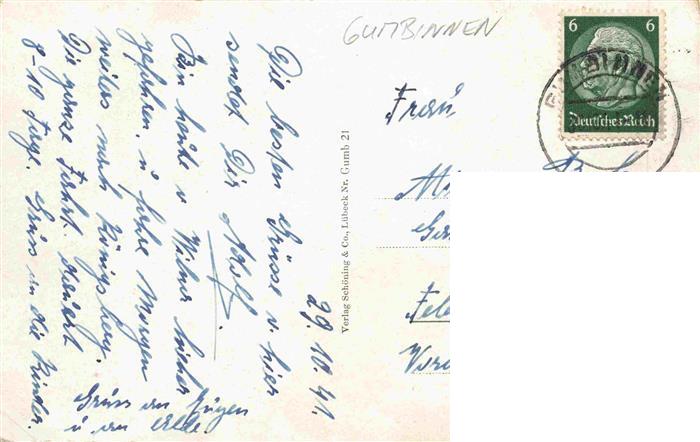 GUMBINNEN
6 6
Deutsches Reich
GUMBINNEN
Die besten Grüsse v. hier
sendet Dir Adolf.
Bin heute v. Wilna hieher
gefahren u. fahre Morgen
weiter nach Königsberg.
Die ganze Fahrt dauert
8-10 Tage. Gruss an die Kinder.
Gruss an Eugen
u. an Hilde.
29.10.41.
Verlag Schöning & Co., Lübeck Nr. Gumb 21
Frau